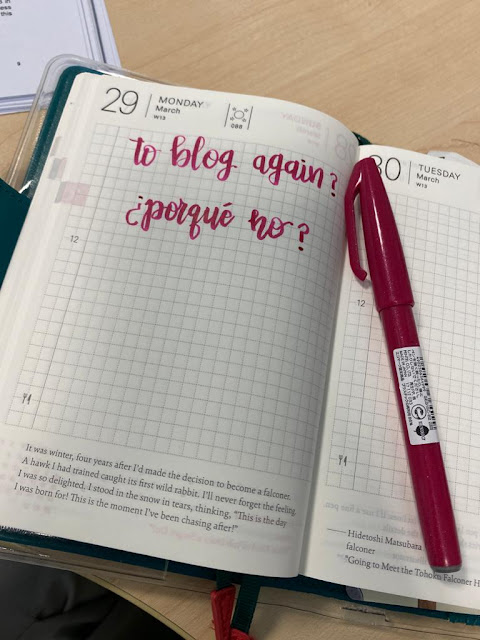 29
MONDAY
March
W13
088
to blog again?
¿porqué no?
12
It was winter, four years after I'd made the decision to become a falconer.
A hawk I had trained caught its first wild rabbit. I'll never forget the feeling.
I was so delighted, I stood in the snow in tears, thinking, "This is the day
I was born for! This is the moment I've been chasing after!"
30
TUESDAY
March
W13
12
Hidetoshi Matsubara
falconer
"Going to Meet the Tohoku Falconer H